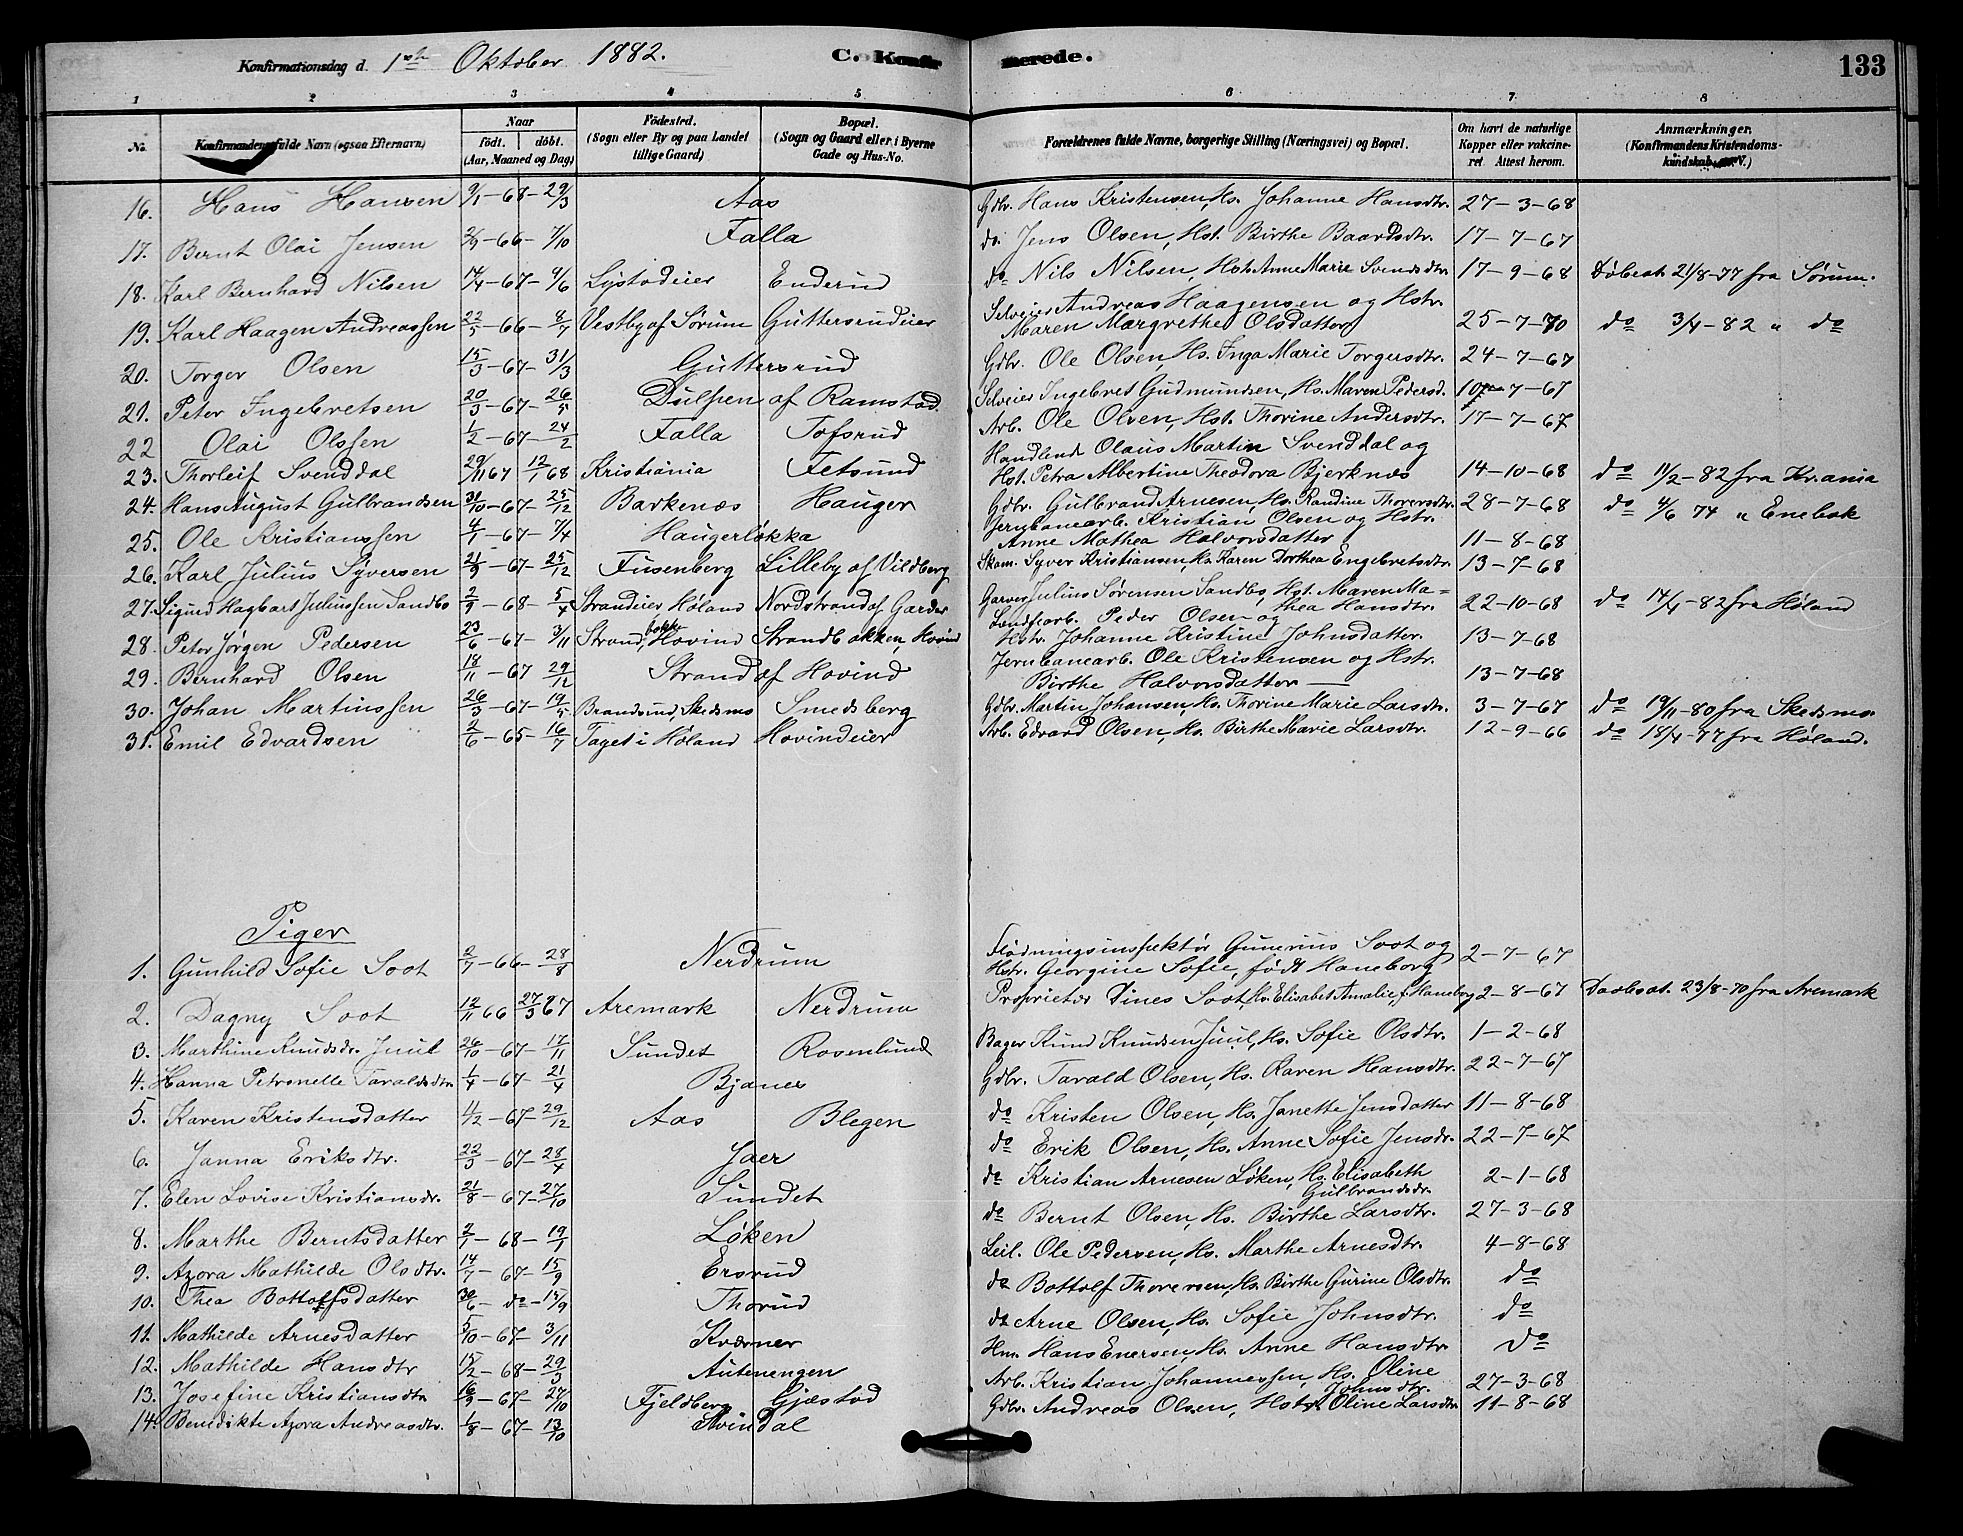 Konfirmationsdag d. 1ste Oktober 1882. C. Konfirmerede. 133
1 2 3 4 5 6 7 8
No. Konfirmandens fulde Navn (ogsaa Efternavn) Naar Født. døbt. (Aar, Maaned og Dag) Fødested. (Sogn eller By og paa Landet tillige Gaard) Bopæl. (Sogn og Gaard eller i Byerne Gade og Hus-No. Forældrenes fulde Navne, borgerlige Stilling (Næringsvei) og Bopæl. Om havt de naturlige Kopper eller vakcineret. Attest herom. Anmærkninger. (Konfirmandens Kristendomskundskab V.)
16. Hans Hansen 9/1-68-29/3 Aas Gdbr. Hans Kristensen, Hs. Johanne Hansdtr. 27-3-68
17. Bernt Olai Jensen 2/9-66-7/10 Falla do. Jens Olsen, Hst. Birthe Baardsdtr. 17-7-67
18. Karl Bernhard Nilsen 14/4-67-9/6 Lystadeier Enderud do Nils Nilsen, Hst. Anne Marie Svendsdtr. 17-9-68 Døbeat. 21/8-77 fra Sørum.
19. Karl Haagen Andreassen 22/5-66-8/7 Vestby af Sørum Guttersrudeier Selveier Andreas Haagensen og Hstr.
Maren Margrethe Olsdatter 25-7-70 do 3/4-82 " do
20. Torger Olsen 15/3-67-31/3 Guttersrud Gdbr. Ole Olsen, Hs. Inga Marie Torgersdtr. 24-7-67
21. Peter Ingebretsen 20/3-67-26/5 af Ramstad Selveier Ingebret Gudmundsen, Hs. Maren Pedersd. 10-7-67
22 Olai Olssen 1/2-67-24/2 Falla Tofsrud Arb. Ole Olsen, Hst. Thorine Andersdtr. 17-7-67
23. Thorleif Svenddal 29/11 67 12/1 68 Kristiania Fetsund Handlend Olaus Martin Svenddal og
Hst. Petra Albertine Theodora Bjerknes 14-10-68 do 11/2-82 fra Kr.ania
24. Hans August Gulbrandsen 31/10-67-25/12 Barkenæs Hauger Gdbr. Gulbrand Arnesen, Hs. Randine Thorersdtr. 28-7-68 do 4/6 74 " Enebak
25. Ole Kristianssen 4/1-67-7/4 Haugerløkka Jernbanearb. Kristian Olsen og Hstr.
Anne Mathea Halvorsdatter 11-8-68
26. Karl Julius Syversen 21/9-67-25/12 Fusenberg Lilleby af Vildberg Skom. Syver Kristiansen, Hs. Karen Dorthea Engebretsdtr. 13-7-68
27. Sigurd Hagbart Juliussen Sandbo 2/9-68-5/4 Strandeier Høland Nordstrand af Garder Garver Julius Sørensen Sandbo, Hst. Maren Mathea Hansdtr. 22-10-68 do 14/4-82 fra Høland
28. Peter Jørgen Pedersen 23/6-67-3/11 Strand, Hovind Strandbakken, Hovind Landfearb. Peder Olsen og
Hstr. Johanne Kristine Johnsdatter. 13-7-68
29. Bernhard Olsen 18/11-67 29/12 Strand af Hovind Jernbanearb. Ole Kristensen og Hstr.
Birthe Halvorsdatter 13-7-68
30. Johan Martinssen 26/3-67-19/5 Brandsrud, Skedsmo Smedsberg Gdbr. Martin Johansen, Hs. Thorine Marie Larsdtr. 3-7-67 do 19/11-80 fra Skedsmo.
31. Emil Edvardsen 2/6-65-16/7 Taget i Høland Hovindeier Arb. Edvard Olsen, Hs. Birthe Marie Larsdtr. 12-9-66 do 18/4-77 fra Høland.
Piger
1. Gunhild Sofie Soot 2/7-66-28/8 Nerdrum Flødningsinspektør Gunerius Soot og
Hstr. Georgine Sofie, født Haneborg 2-7-67
2. Dagny Soot 12/11 66 27/3 67 Aremark Nerdrum Proprietær Dines Soot, Hs. Elisabet Amalie, f. Haneborg 2-8-67 Daabsat. 23/8-70 fra Aremark
3. Marthine Knudsdr. Juul 26/10-67-17/11 Sundet Rosenlund Bager Knud Knudsen Juul, Hs. Sofie Olsdtr. 1-2-68
4. Hanna Petronelle Taraldsdtr. 1/4-67-21/4 Bjanes Gdbr. Tarald Olsen, Hs. Karen Hansdtr. 22-7-67
5. Karen Kristensdatter 4/12-67-29/12 Aas Blegen do Kristen Olsen, Hs. Janette Jensdatter 11-8-68
6. Janna Eriksdtr. 22/3-67-28/4 Jaer do Erik Olsen, Hs. Anne Sofie Jensdr. 22-7-67
7. Elen Lovise Kristiansdr. 21/8-67-27/10 Sundet do Kristian Arnesen Løken, Hs. Elisabeth Gulbrandsdr. 2-1-68
8. Marthe Berntsdatter 2/1-68-19/1 Løken do Bernt Olsen, Hs. Birthe Larsdtr. 27-3-68
9. Azora Mathilde Olsdtr. 14/7-67-15/9 Ersrud Leil. Ole Pedersen, Hs. Marthe Arnesdtr. 4-8-68
10. Thea Bottolfsdatter 30/6-do-15/9 Thorud do Bottolf Thorersen, Hs. Birthe Gurine Olsdtr. do
11. Mathilde Arnesdatter 5/10-67-3/11 Kværner do Arne Olsen, Hs. Sofie Johnsdtr. do
12. Mathilde Hansdtr 15/2-68-29/3 Autenengen Hm. Hans Enersen, Hs. Anne Hansdtr. do
13. Josefine Kristiansdtr 16/9-67-27/10 Fjeldberg Gjæstad Arb. Kristian Johannessen, Hs. Oline Johnsdtr. 27-3-68
14. Benedikte Azora Andreasdtr. 1/8-67-13/10 Svindal Gdbr. Andreas Olsen, Hstr. Oline Larsdtr 11-8-68